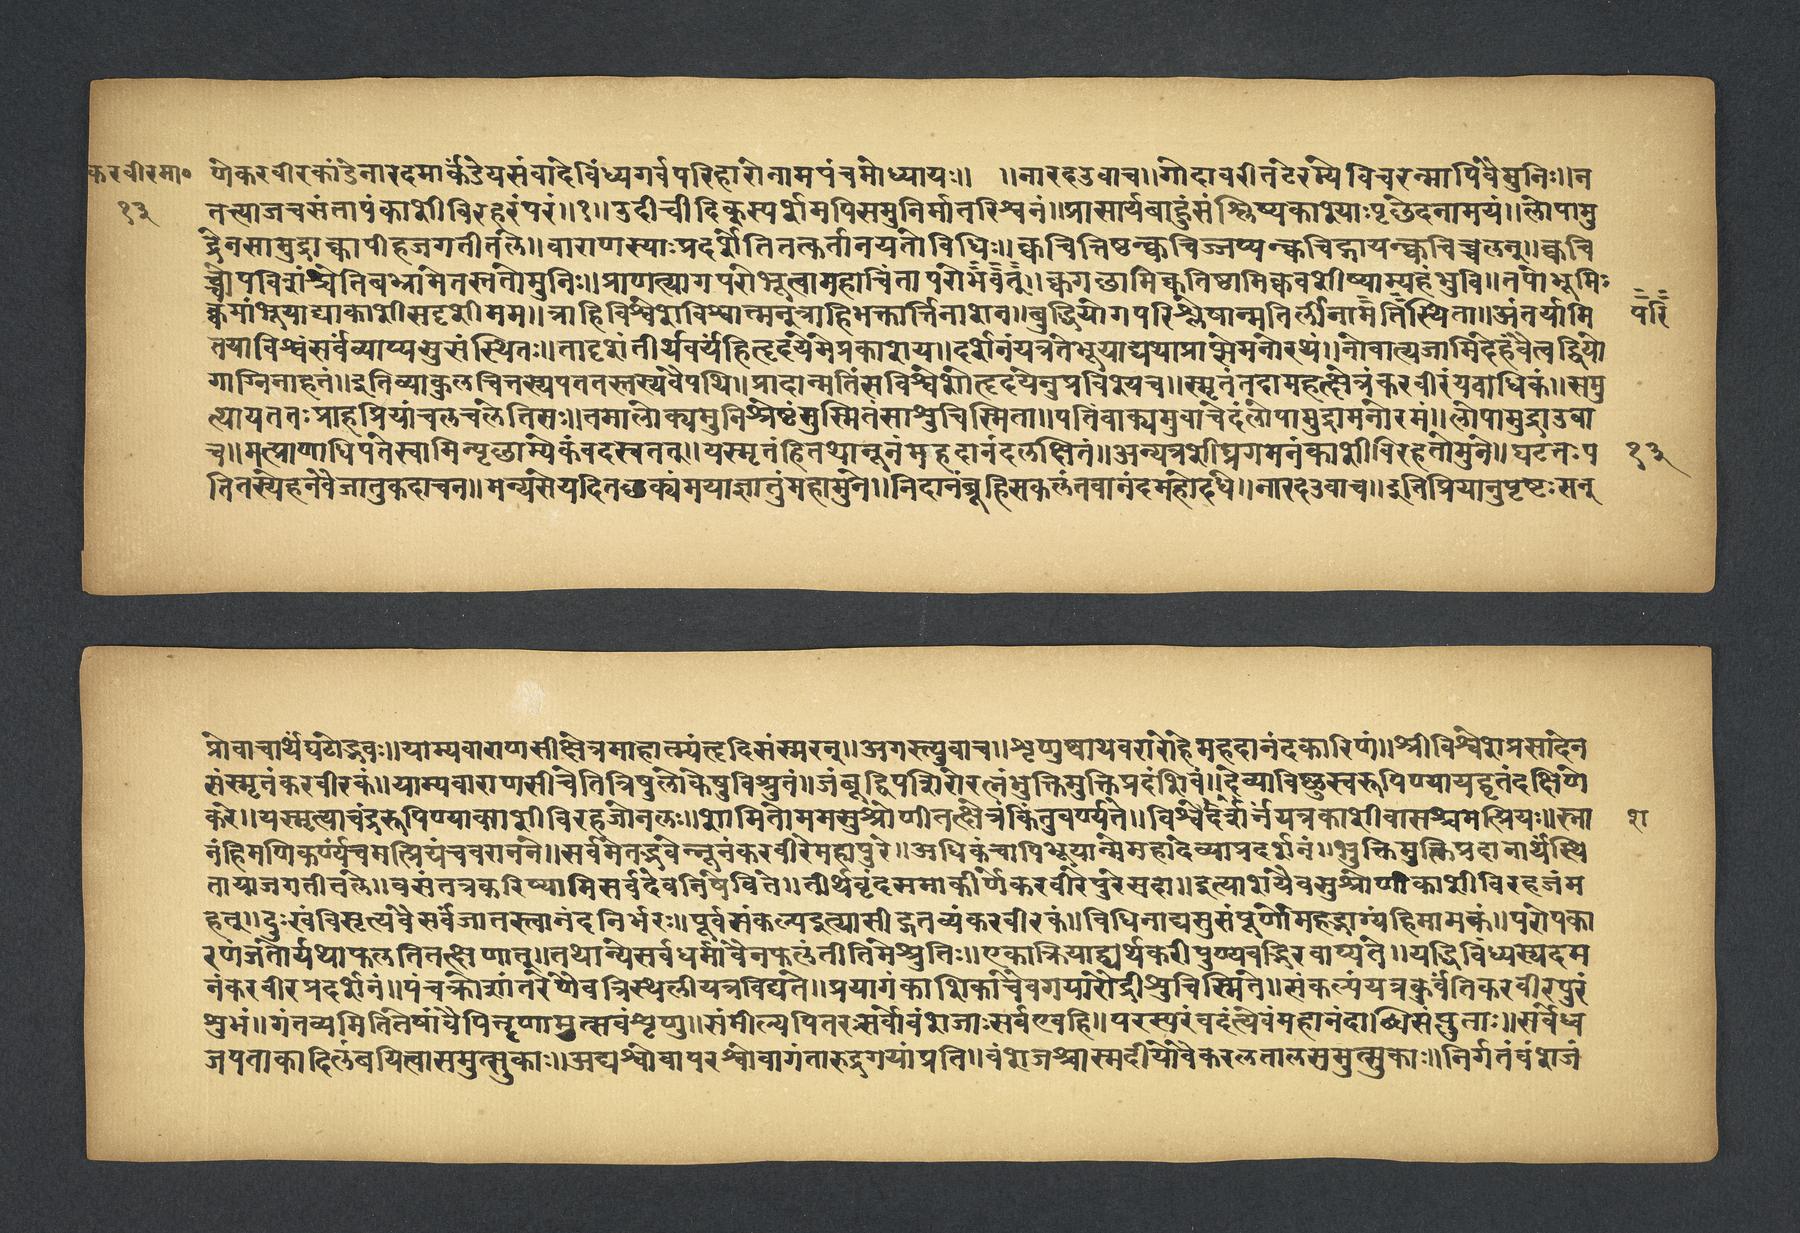 करवीरमा०
१३
णेकरवीरकांडेनारदमार्कंडेयसंवादेविंध्यगर्वपरिहारोनामपंचमोध्यायः॥ ॥नारदउवाच॥गोदावरीतटेरम्येविचरन्मापिवैमुनिः॥न
तत्याजचसंतापंकाशीविरहरंपरं॥१॥उदीचीदिक्स्पर्शमपिसमुनिर्मातरिश्वनं॥प्रासार्यबाहुंसंश्लिष्यकाश्याःपृछेदनामयं॥लोपामु
द्रेनसामुद्राक्कापीहजगतीतले॥वाराणस्याःप्रदर्शेतितत्कर्तानयतोविधिः॥क्वचित्तिष्ठन्क्वचिज्जप्यन्क्वचिद्गायन्क्वचिच्चलन्॥क्वचि
च्चोपविशंश्चेतिबभ्रामेतस्ततोमुनिः॥प्राणत्यागपरोभूत्वामहाचिंतापरोभवेत्॥क्वगछामिक्वतिष्ठामिक्ववशीष्याम्यहंभुवि॥तपोभूमिः
क्वमांभूयाद्याकाशीसदृशीमम॥त्राहिविश्वेशविश्वात्मन्त्राहिभक्तार्त्तिनाशन॥बुद्धियोगपरिश्लेषान्मतिर्लीनामतिस्थिता॥अंतर्यामि
परि
तयाविश्वंसर्वंव्याप्यसुसंस्थितः॥तादृशंतीर्थवर्यंहिहृदयेमेप्रकाशय॥दर्शनंयत्रतेभूयाद्यथाप्राप्नेमनोरथं॥नोवात्यजामिदेहंवैत्वद्वियो
गाग्निनाहतं॥इतिव्याकुलचित्तस्यपततस्तस्यवैपथि॥प्रादान्मतिंसविश्वेशोहृदयेनुप्रविश्यच॥स्मृतंतदामहत्क्षेत्रंकरवीरंयवाधिकं॥समु
त्थायततःप्राहप्रियांचलचलेतिसः॥तमालोक्यमुनिश्रेष्ठंसुस्मितंसाशुचिस्मिता॥पतिंवाक्यमुवाचेदंलोपामुद्रामनोरमं॥लोपामुद्राउवा
च॥मत्प्राणाधिपतेस्वामिन्पृछाम्येकंवदस्वतत्॥यस्मृतंहितथानूनंमहदानंदलक्षितं॥अन्यत्रशीघ्रगमनंकाशीविरहतोमुने॥घटतःप
१३
तितस्येहनवैजातुकदाचन॥मन्यसेयदितछक्यंमयाज्ञातुंमहामुने॥निदानंब्रूहिसकलंतवानंदमहोदधे॥नारदउवाच॥इतिप्रियानुपृष्टःसन्
प्रोवाचार्थंघटोद्भवः॥याम्यवाराणसीक्षेत्रमाहात्म्यंहृदिसंस्मरन्॥अगस्त्युवाच॥शृणुष्वाथवरारोहेमहदानंदकारिणं॥श्रीविश्वेशप्रसादेन
संस्मृतंकरवीरकं॥याम्यवाराणसीचेतित्रिषुलोकेषुविश्रुतं॥जंबूद्विपशिरोरत्नंभुक्तिमुक्तिप्रदंशिवं॥देव्याविष्णुस्वरूपिण्यायद्धृतंदक्षिणे
करे॥यस्मृत्याचंद्ररूपिण्याकाशीविरहजोनलः॥शामितोममसुश्रोणीतत्क्षेत्रंकिंनुवर्ण्यते॥विश्वेदर्शनंयत्रकाशीवासश्चमत्प्रियः॥स्ना
श
नंहिमणिकर्ण्यंचमत्प्रियंचवरानने॥सर्वमेतद्भवेन्नूनंकरवीरेमहापुरे॥अधिकंचापिभूयान्मेमहादेव्याप्रदर्शनं॥भुक्तिमुक्तिप्रदानार्थंस्थि
तायाजगतीतले॥वसंतत्रकरिष्यामिसर्वदेवनिषेविते॥तीर्थवृंदसमाकीर्णेकरवीरेपुरेसदा॥इत्याशयैवसुश्रोणीकाशीविरहजंम
हत्॥दुःखंविसृत्यवैसर्वंजातस्त्वानंदनिर्भरः॥पूर्वसंकल्पइत्यासीद्गंतव्यंकरवीरकं॥विधिनाद्यसुसंपूर्णोमहद्भाग्यंहिमामकं॥परोपका
रणंजंतोर्यथाफलतितत्क्षणात्॥तथान्येसर्वधर्मावैनफलंतीतिमेश्रुतिः॥एकाक्रियाद्व्यर्थकरीपुण्यवद्भिरवाप्यते॥यद्विविंध्यस्यदम
नंकरवीरप्रदर्शनं॥पंचक्रोशांतरेणैवत्रिस्थलीयत्रविद्यते॥प्रयागंकाशिकाचैवगयारोद्रीशुचिस्मिते॥संकल्पंयत्रकुर्वंतिकरवीरपुरं
शुभं॥गंतव्यमितितेषांवैपितृणामुत्सवंशृणु॥संमील्यपितरःसर्वेवंशजाःसर्वएवहि॥परस्परंवदंत्येवंमहानंदाब्धिसंप्लुताः॥सर्वेध्व
जपताकादिलंबयित्वासमुत्सुकाः॥अद्यश्वोवापरश्वोवागंतारुद्रगयांप्रति॥वंशजश्चास्मदीयोवैकरलतालसमुत्सुकाः॥निर्गतंवंशजं